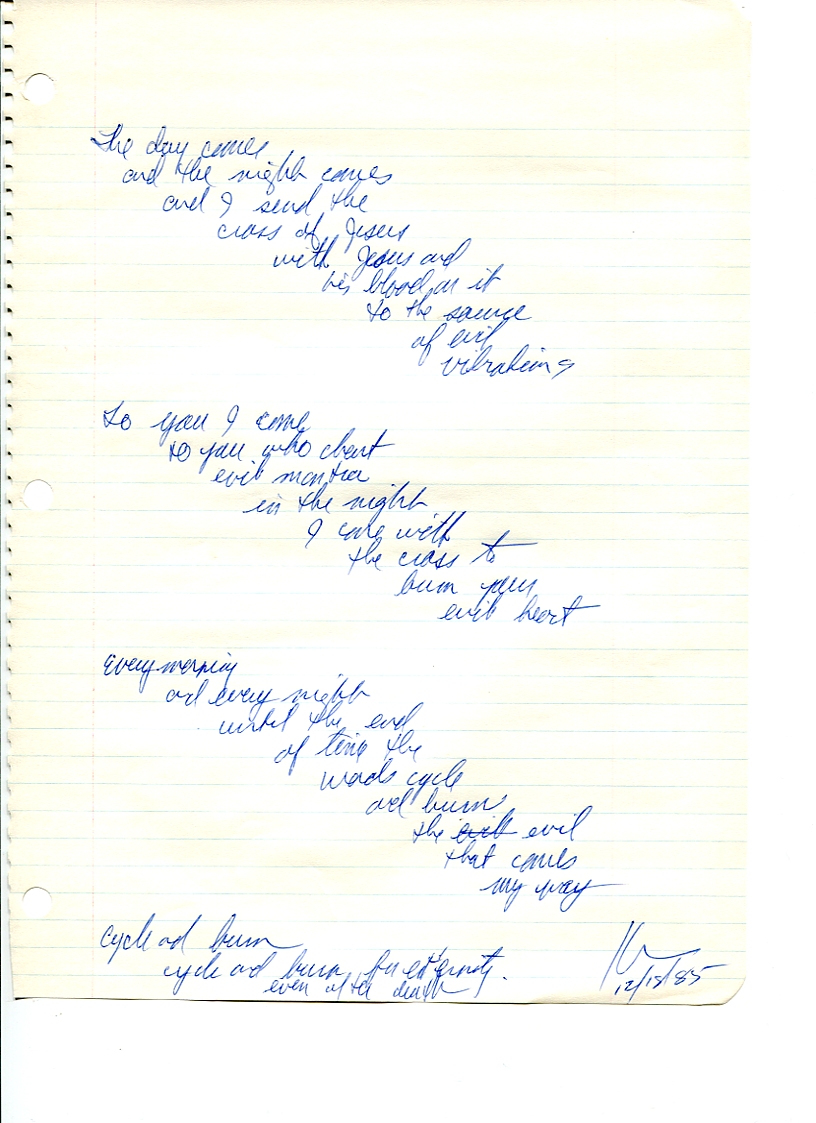 The day comes
and the night comes
and I send the
cross of Jesus
with Jesus and
his blood on it
to the source
of evil
vibrations
To you I come
to you who chant
evil mantra
in the night
I come with
the cross to
burn your
evil heart
Every morning
and every night
until the end
of time the
words cycle
and burn
the evil evil
that comes
my way
Cycle and burn
cycle and burn for eternity.
even after death
12/18/85